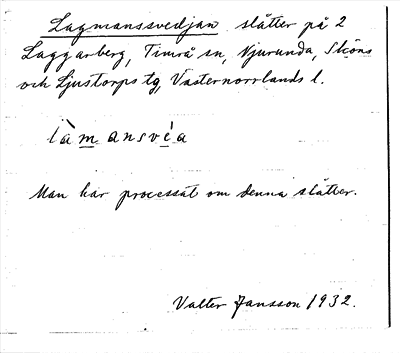 Lagmanssvedjan slåtter på 2
Laggarberg, Timrå sn, Njurunda, Sköns
och Ljustorps tg, Västernorrlands l.
làmansvéa
Man har processat om denna slåtter.
Valter Jansson 1932.